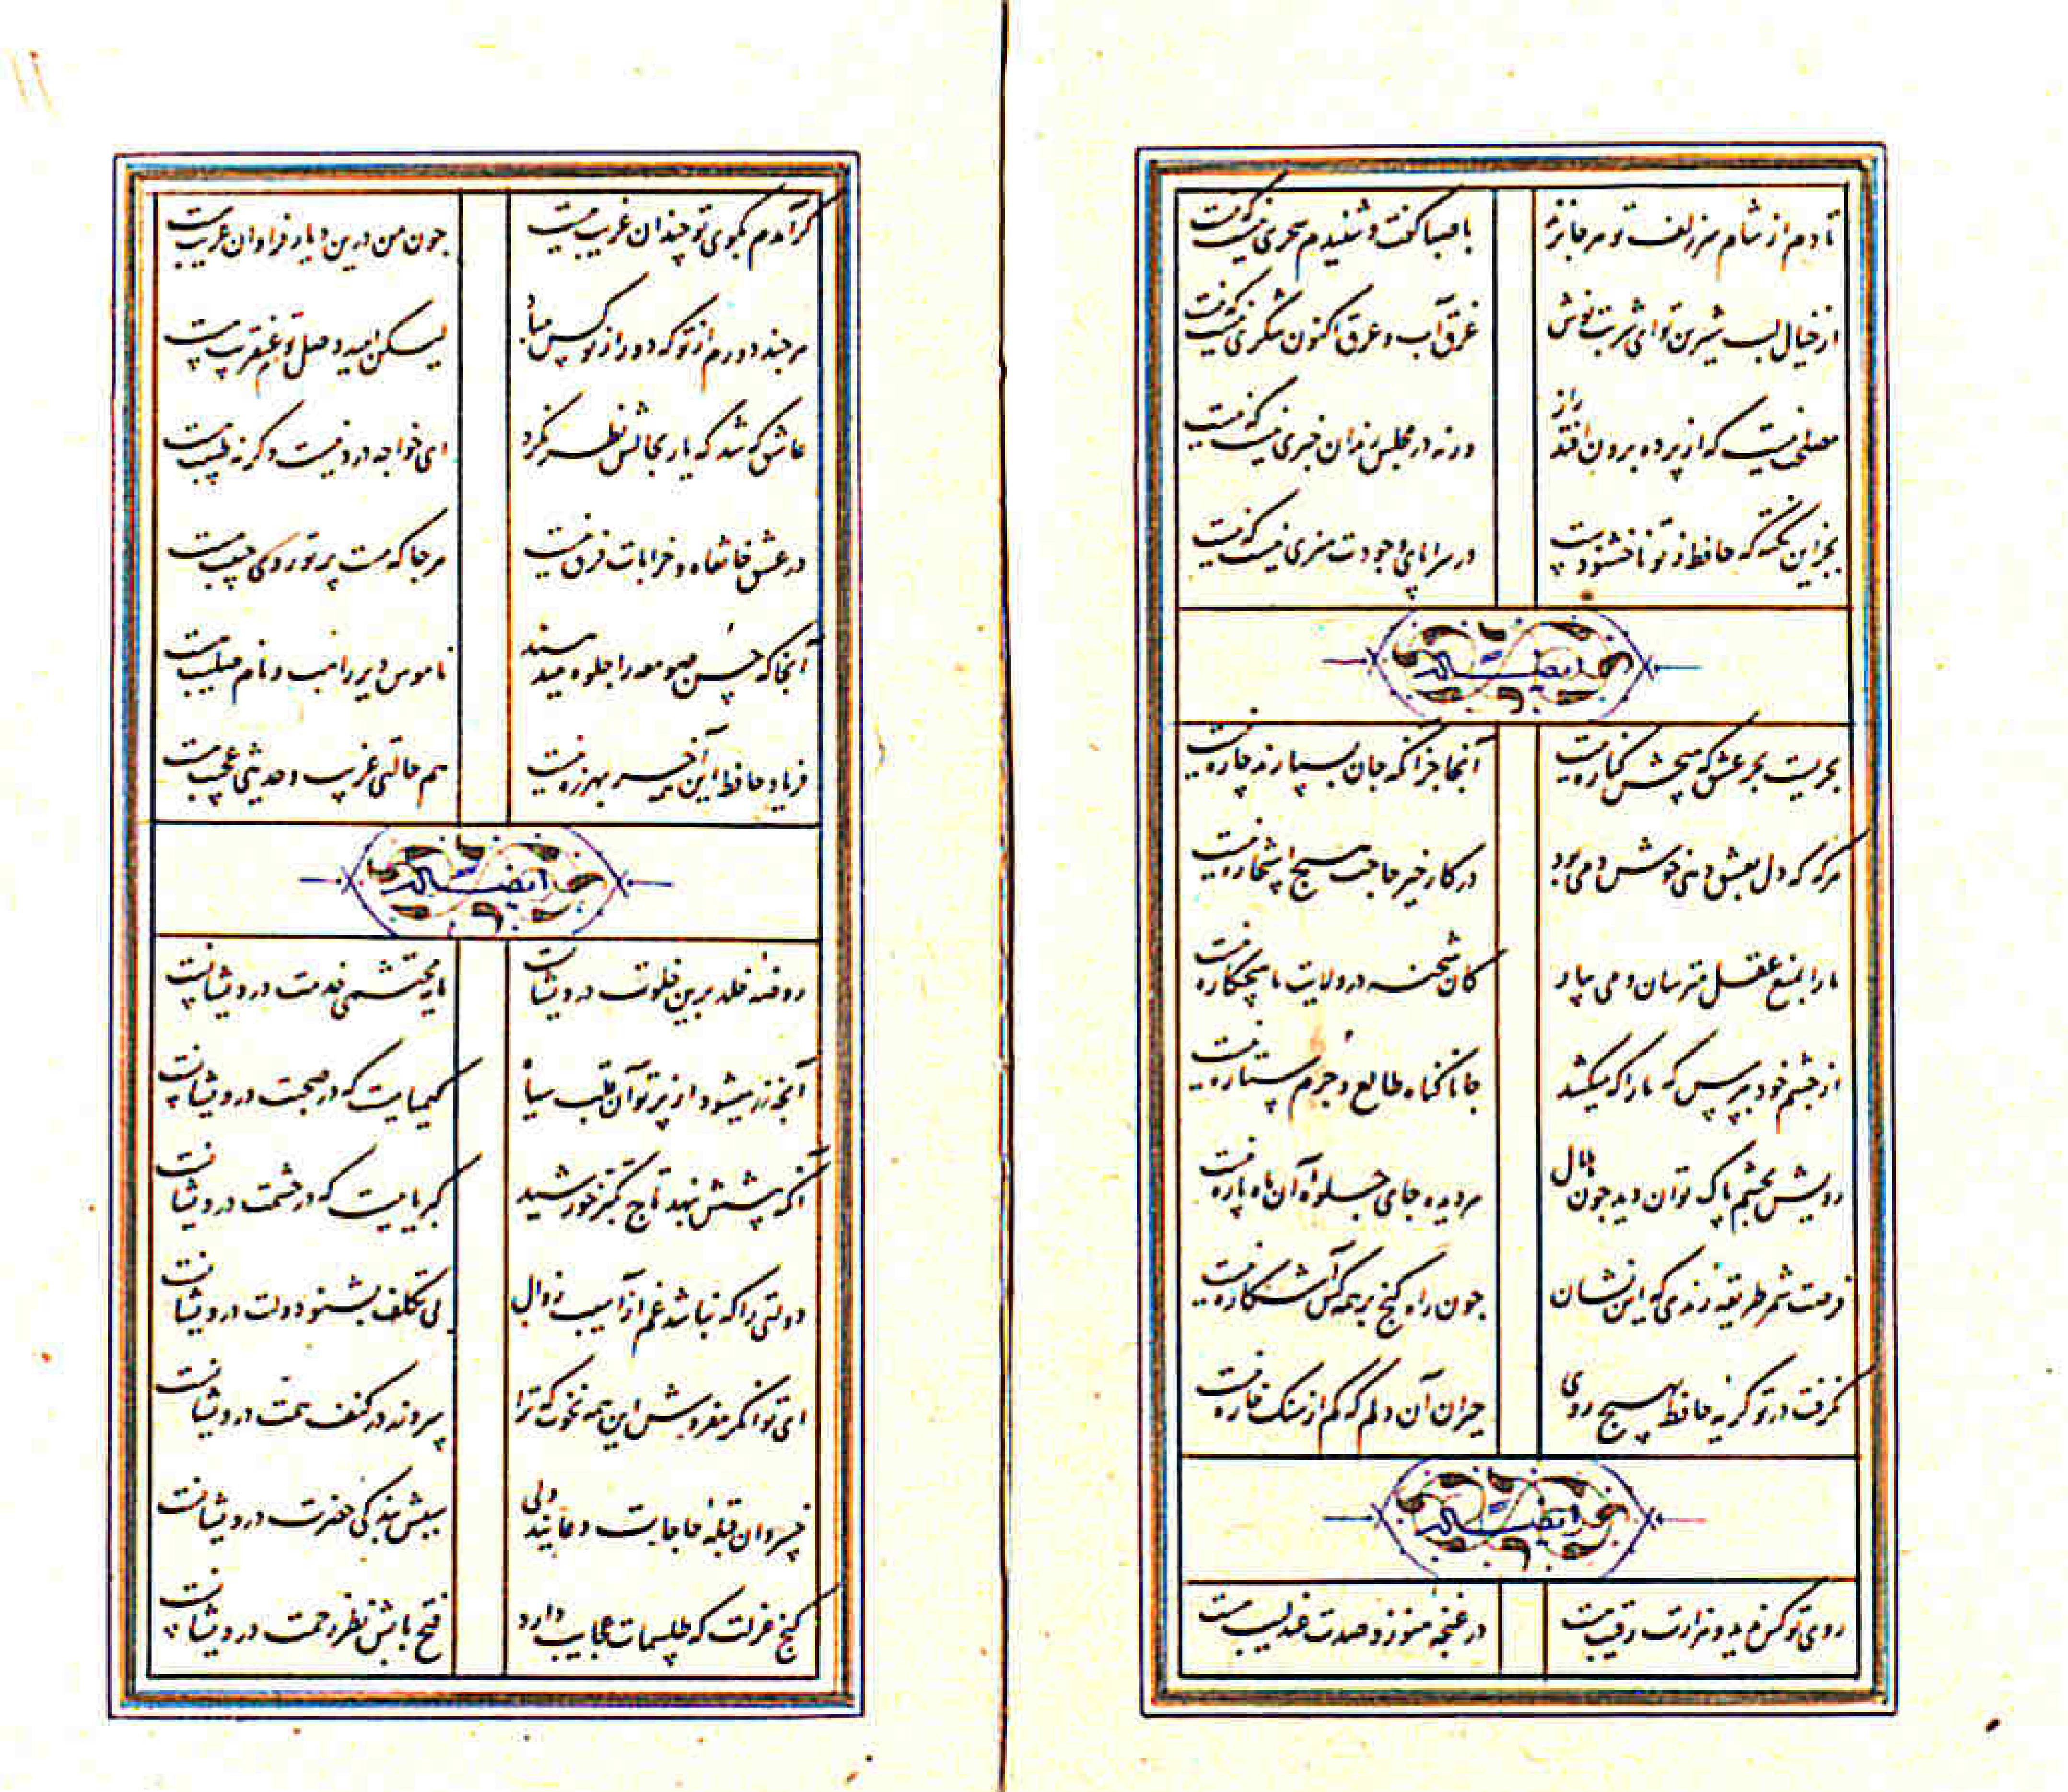 تا دم از شام سر زلف تو هر جا نزنم
با صبا گفت و شنیدم سحری نیست که نیست
از خیال لب شیرین تو ای شربت نوش
غرق آب و عرق اکنون شکری نیست که نیست
مصلحت نیست که از پرده برون افتد راز
ورنه در مجلس رندان خبری نیست که نیست
بجز این نکته که حافظ ز تو ناخشنودست
در سراپای وجودت هنری نیست که نیست
ایضاً له
بحریست بحر عشق که هیچش کناره نیست
آنجا جز آنکه جان بسپارند چاره نیست
هر گه که دل بعشق دهی خوش دمی بود
در کار خیر حاجت هیچ استخاره نیست
ما را بمنع عقل مترسان و می بیار
کان شحنه در ولایت ما هیچ کاره نیست
از چشم خود بپرس که ما را که میکشد
جانا گناه طالع و جرم ستاره نیست
رویش بچشم پاک توان دید چون هلال
هر دیده جای جلوه آن ماه پاره نیست
فرصت شمر طریقه رندی که این نشان
چون راه گنج بر همه کس آشکاره نیست
نگرفت در تو گریه حافظ بهیچ روی
حیران آن دلم که کم از سنگ خاره نیست
ایضاً له
روی تو کس ندید و هزارت رقیب هست
در غنچه هنوز و صدت عندلیب هست
گر آمدم بکوی تو چندان غریب نیست
چون من درین دیار فراوان غریب هست
هر چند دورم از تو که دور از تو کس مباد
لیکن امید وصل توام عنقریب هست
عاشق که شد که یار بحالش نظر نکرد
ای خواجه درد نیست وگرنه طبیب هست
در عشق خانقاه و خرابات فرق نیست
هر جا که هست پرتو روی حبیب هست
آنجا که حسن صومعه را جلوه میدهند
ناموس دیر راهب و نام صلیب هست
فریاد حافظ این همه آخر بهرزه نیست
هم حالتی غریب و حدیثی عجیب هست
ایضاً له
روضه خلد برین خلوت درویشانست
مایه محتشمی خدمت درویشانست
آنچه زر میشود از پرتو آن قلب سیاه
کیمیاییست که در صحبت درویشانست
آنکه پیشش بنهد تاج تکبر خورشید
کبریاییست که در حشمت درویشانست
دولتی را که نباشد غم از آسیب زوال
بی تکلف بشنو دولت درویشانست
ای توانگر مفروش این همه نخوت که ترا
سر و زر در کنف همت درویشانست
خسروان قبله حاجات دعایند ولی
سببش بندگی حضرت درویشانست
گنج عزلت که طلسمات عجایب دارد
فتح بابش نظر رحمت درویشانست